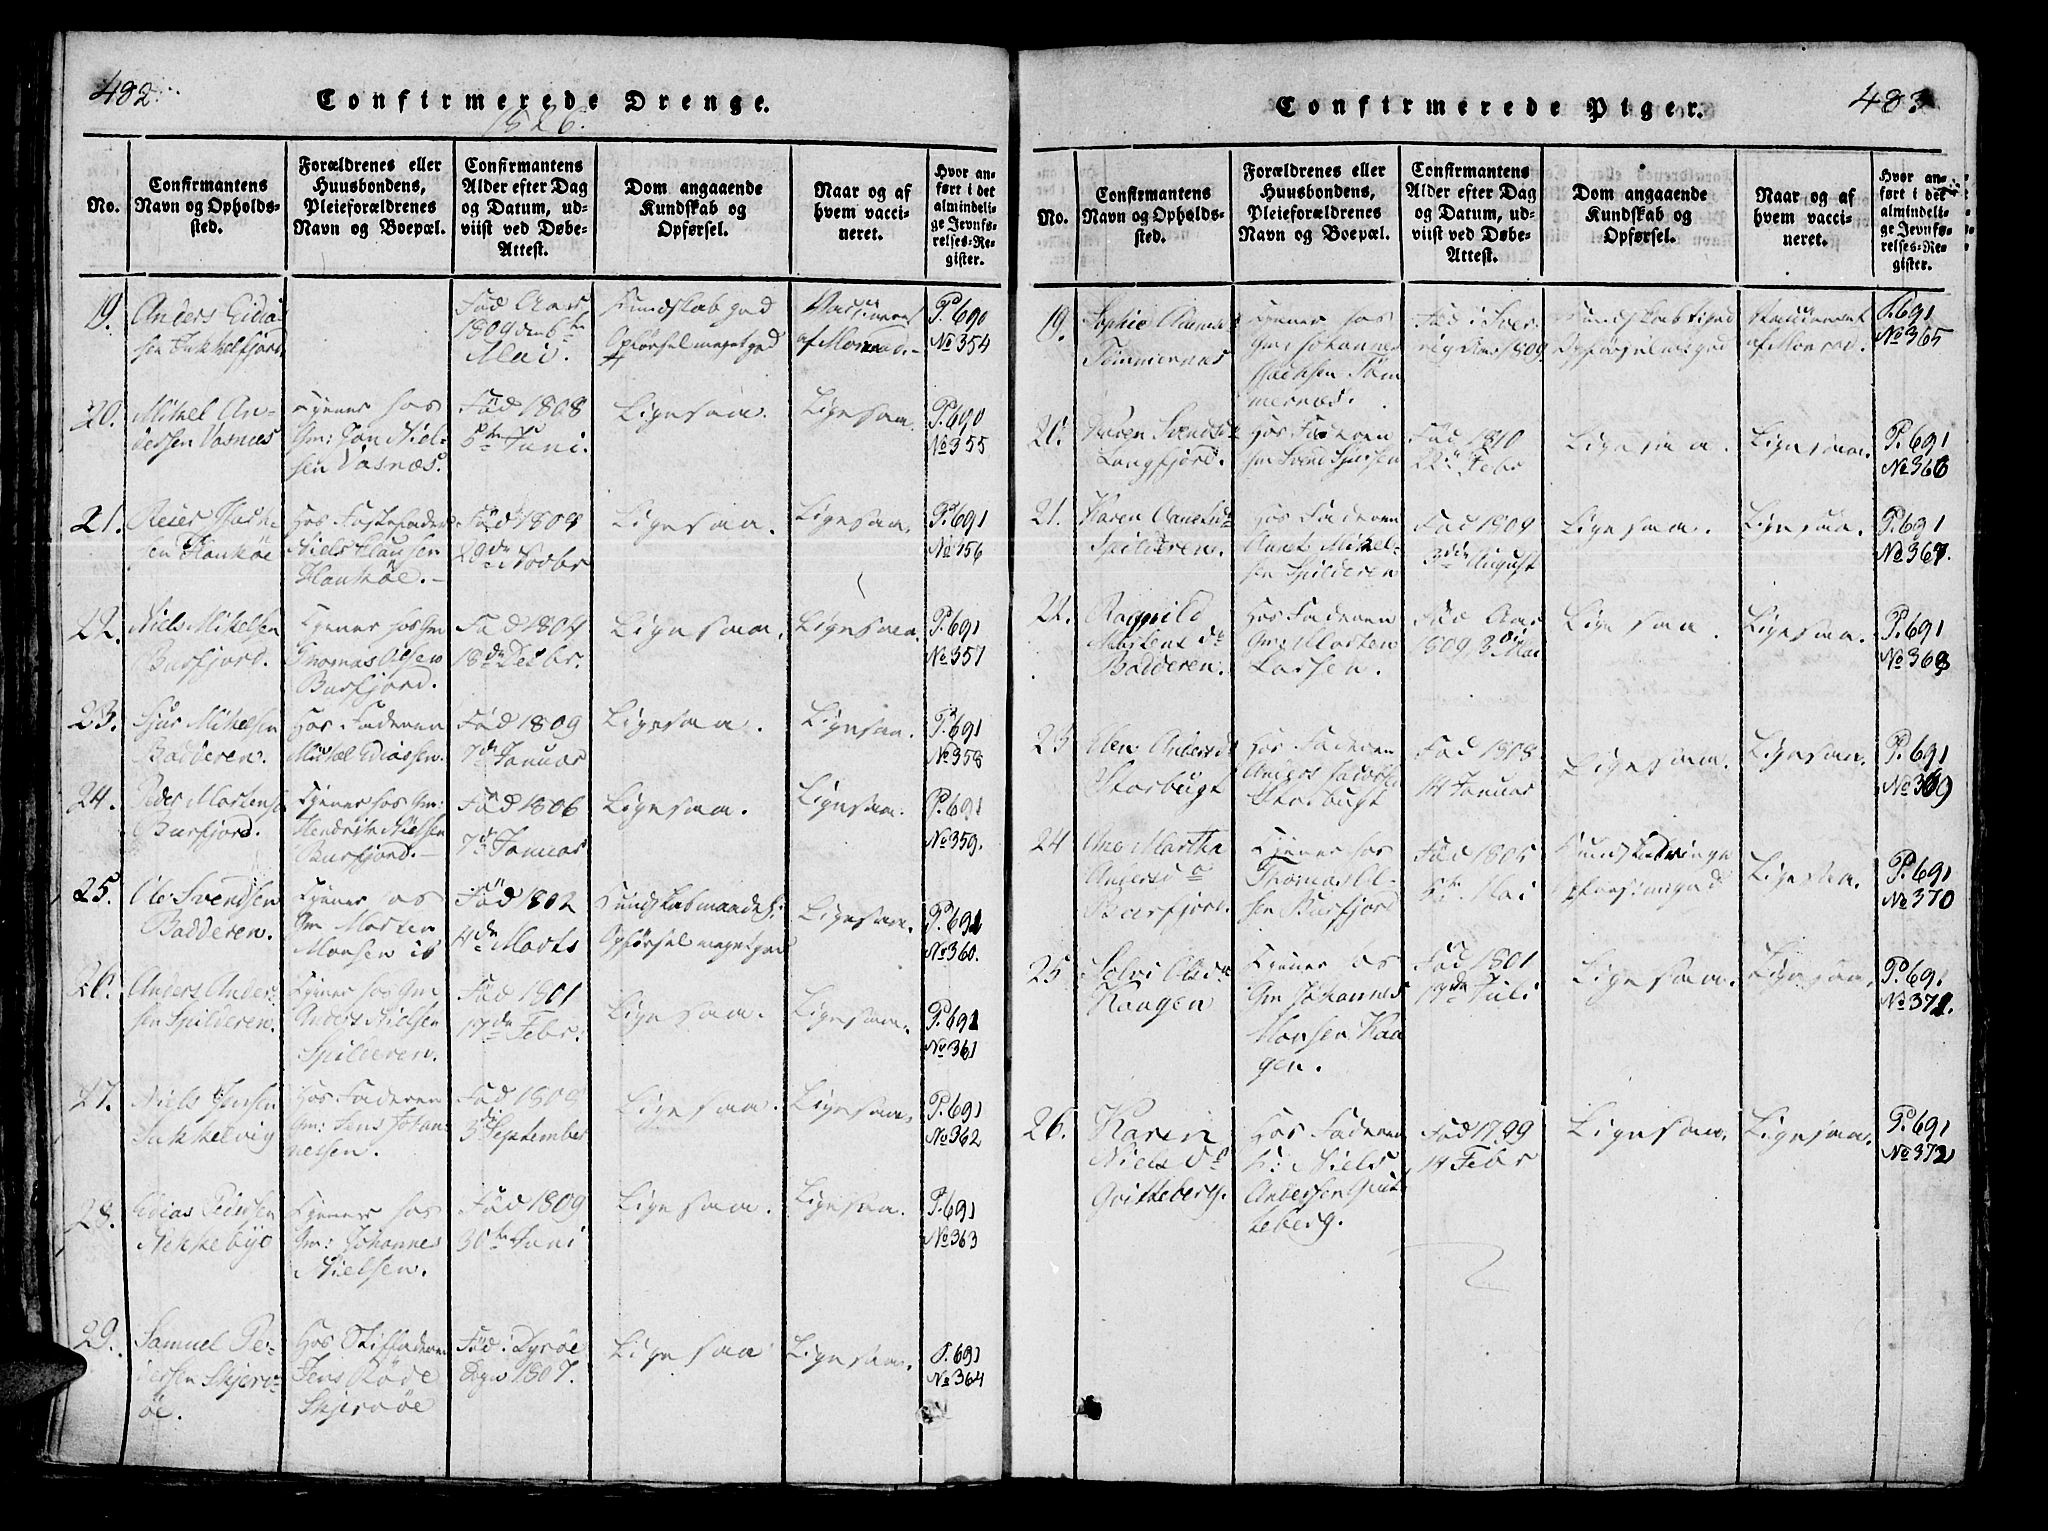 482.
Confirmerede Drenge.
1826.
No.
Confirmantens
Navn og Opholds-
sted.
Forældrenes eller
Huusbondens,
Pleieforældrenes
Navn og Boepæl.
Confirmantens
Alder efter Dag
og Datum, ud-
viist ved Døbe-
Attest.
Dom angaaende
Kundskab og
Opførsel.
Naar og af
hvem vacci-
neret.
Hvor an-
ført i det
almindeli-
ge Jevnfø-
relses-Re-
gister.
19.
Anders Edia
sen Jøkkelfjord
Fød Aar
1809 den 6te
Mai.
Kundskab god
Opførsel meget god
Vaccineret
af Monrad.
P. 690
No 354
20.
Mikel An-
dersen Vasnæs
Tjener hos
Gm: Jon Niel-
sen Vasnæs.
Fød 1808
5te Juni.
Ligesaa.
Ligesaa.
P. 690
No 355
21.
Peder
sen Haukøe
Hos Fosterfader
Niels Clausen
Haukøe.
Fød 1808
Novbr
Ligesaa.
Ligesaa.
P. 691
No 356
22.
Niels Mikelsen
Burfjord.
Tjener hos Gm
Thomas Olsen
Burfjord.
Fød 1804
18de Decbr.
Ligesaa.
Ligesaa.
P. 691
No 357
23.
Mikelsen
Badderen.
Hos Faderen
Mikel Ediassen.
Fød 1809
7de Januar
Ligesaa.
Ligesaa.
P. 691
No 358
24.
Peder Mortens
Burfjord.
Tjener hos Gm:
Hendrik Nielsen
Burfjord.
Fød 1806
7de Januar
Ligesaa.
Ligesaa.
P. 691
No 359.
25.
Ole Svendsen
Badderen.
Tjener hos
Gm Morten
Monsen
Fød 1802
4de Marts
Kundskab maadel.
Opførsel meget god
Ligesaa.
P. 691
No 360.
26.
Anders Ander-
sen Spilderen.
Tjener hos Gm
Anders Nielsen
Spilderen.
Fød 1801
17de Febr.
Ligesaa.
Ligesaa.
P. 691
No 361
27.
Niels Jensen
Jøkkelvig
Hos Faderen
Gm: Jens Johan
nessen.
Fød 1808
5te September
Ligesaa.
Ligesaa.
P. 691
No 362
28.
Edias Pedersen
Nikkebye
Tjener hos
Gm: Johannes
Nielsen.
Fød 1809
30te Juni
Ligesaa.
Ligesaa.
P. 691
No 363
29.
Samuel Pe-
dersen Skjerv-
öe.
Hos Stiffaderen
Jens Røde
Skjervöe
Fød i Dyröe
1807.
Ligesaa
Ligesaa.
P. 691
No 364
Confirmerede Piger.
483
No.
Confirmantens
Navn og Opholds-
sted.
Forældrenes eller
Huusbondens,
Pleieforældrenes
Navn og Boepæl.
Confirmantens
Alder efter Dag
og Datum, ud-
viist ved Døbe-
Attest.
Dom angaaende
Kundskab og
Opførsel.
Naar og af
hvem vacci-
neret.
Hvor an-
ført i det
almindeli-
ge Jevnfø-
relses-Re-
gister.
19.
Sophie
Tømmernæs
Tjener hos
Gm: Johannes
Isachsen Tøm
mernæs.
Fød i Sver
rig Aar 1809
Kundskab god
Opførsel god
Vaccineret
af Monrad.
P. 691
No 365
20.
Karen Svends
Langfjord.
Hos Faderen
Svend
Fød 1810
22de Febr
Ligesaa.
Ligesaa.
P. 691
No 366
21.
Karen
Spilderen.
Hos Faderen
Mikel-
sen Spilderen
Fød 1809
3die August
Ligesaa.
Ligesaa.
P. 691
No 367.
22.
Ragnild
Mortens da
Badderen.
Hos Faderen
Gm: Morten
Larsen.
Fød Aar
1809, 3die Mai
Ligesaa.
Ligesaa.
P. 691
No 368
23
Elen Andersd
Storbugt
Hos Faderen
Anders
Storbugt
Fød 1808.
14 Januar
Ligesaa.
Ligesaa.
P. 691
No 369
24
Ane Martha
Andersd
Burfjord.
Tjener hos
Thomas Ol-
sen Burfjord
Fød 1805
Mai
Kundskab ringe
Opførsel god
Ligesaa.
P. 691
No 370
25
Olsda
Kaagen
Tjener hos
Gm Johannes
Monsen Kaa
gen.
Fød 1801
19de Juli
Ligesaa.
Ligesaa.
P. 691
No 371.
26.
Karen
Niels da
Qvitteberg.
Hos Faderen
Niels
Andersen Qvit
teberg.
Fød 1799
14 Febr
Ligesaa.
Ligesaa.
P. 691
No 372